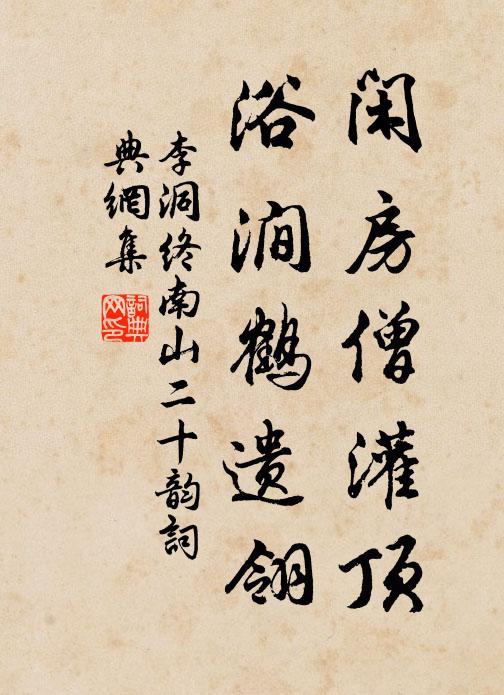 闲房僧灌顶
浴涧鹤遗翎
李洞终南山二十韵词
典網集
詞典網印